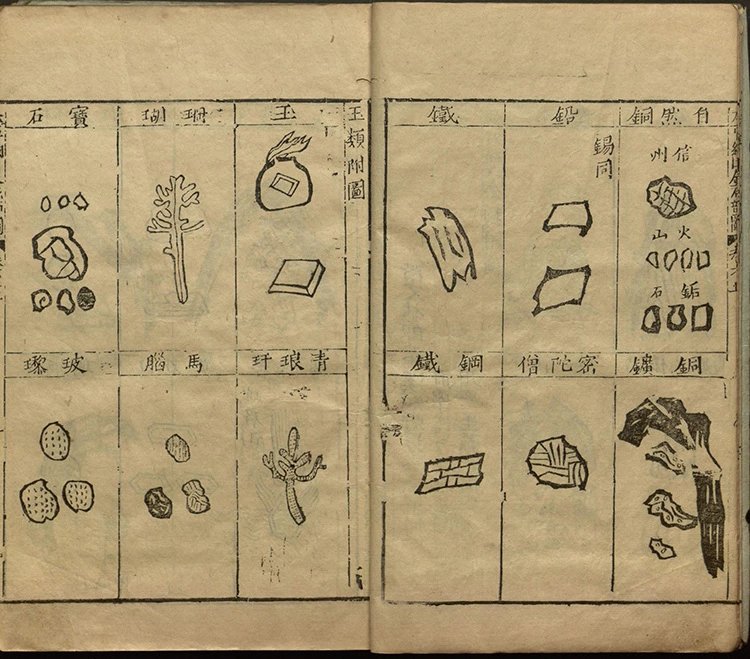 自然銅
信州
火山
石
鉛
錫同
鐵
銅鑛
密陀僧
鋼鐵
玉類附圖
玉
珊瑚
寶石
青琅玕
馬腦
玻瓈